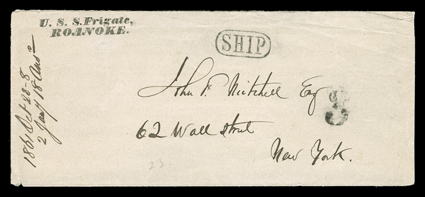 U. S. S. Frigate,
ROANOKE.
SHIP
John F. Mitchell Esq
62 Wall Street
New York.
1861 Oct 20-8
2 Jany 18